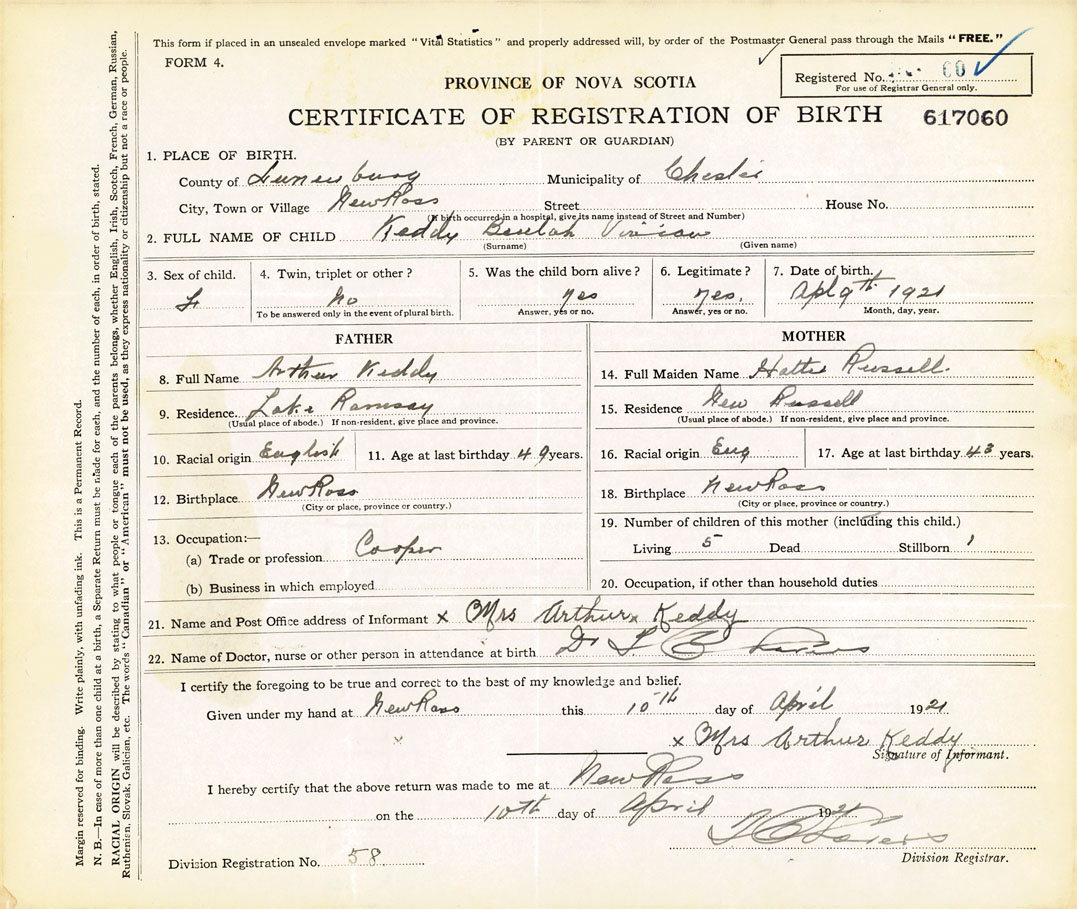 This form if placed in an unsealed envelope marked "Vital Statistics" and properly addressed will, by order of the Postmaster General pass through the Mails "FREE."
FORM 4.
Registered No. 60
For use of Registrar General only.
PROVINCE OF NOVA SCOTIA
CERTIFICATE OF REGISTRATION OF BIRTH 617060
(BY PARENT OR GUARDIAN)
1. PLACE OF BIRTH.
County of Lunenburg Municipality of Chester
City, Town or Village New Ross Street House No.
(If birth occurred in a hospital, give its name instead of Street and Number)
2. FULL NAME OF CHILD Keddy Beulah Vivian
(Surname) (Given name)
3. Sex of child. 4. Twin, triplet or other? 5. Was the child born alive? 6. Legitimate? 7. Date of birth.
F No yes yes. Apl 9th 1921
To be answered only in the event of plural birth. Answer, yes or no. Answer, yes or no. Month, day, year.
FATHER MOTHER
8. Full Name Arthur Keddy 14. Full Maiden Name Hattie Russell
9. Residence. Lake Ramsay 15. Residence New Russell
(Usual place of abode.) If non-resident, give place and province. (Usual place of abode.) If non-resident, give place and province.
10. Racial origin English 11. Age at last birthday 49 years. 16. Racial origin Eng 17. Age at last birthday 43 years.
12. Birthplace New Ross 18. Birthplace New Ross
(City or place, province or country.) (City or place, province or country.)
13. Occupation:— 19. Number of children of this mother (including this child.)
(a) Trade or profession Cooper Living 5 Dead Stillborn 1
(b) Business in which employed 20. Occupation, if other than household duties
21. Name and Post Office address of Informant x Mrs Arthur Keddy
22. Name of Doctor, nurse or other person in attendance at birth Dr
I certify the foregoing to be true and correct to the best of my knowledge and belief.
Given under my hand at New Ross this 10th day of April 1921
x Mrs Arthur Keddy
Signature of Informant.
I hereby certify that the above return was made to me at New Ross
on the 10th day of April 1921
Division Registration No. 58 Division Registrar.
Margin reserved for binding. Write plainly, with unfading ink. This is a Permanent Record.
N. B.—In case of more than one child at a birth, a Separate Return must be made for each, and the number of each, in order of birth, stated.
RACIAL ORIGIN will be described by stating to what people or tongue each of the parents belongs, whether English, Irish, Scotch, French, German, Russian,
Ruthenian, Slovak, Galician, etc. The words "Canadian" or "American" must not be used, as they express nationality or citizenship but not a race or people.